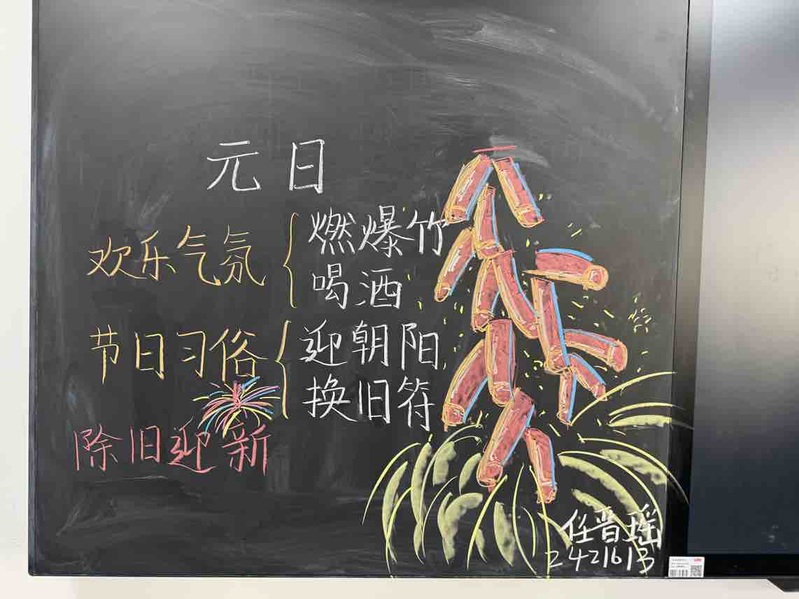 元日
欢乐气氛 { 燃爆竹
喝酒
节日习俗 { 迎朝阳
换旧符
除旧迎新
任晋瑶
2421613